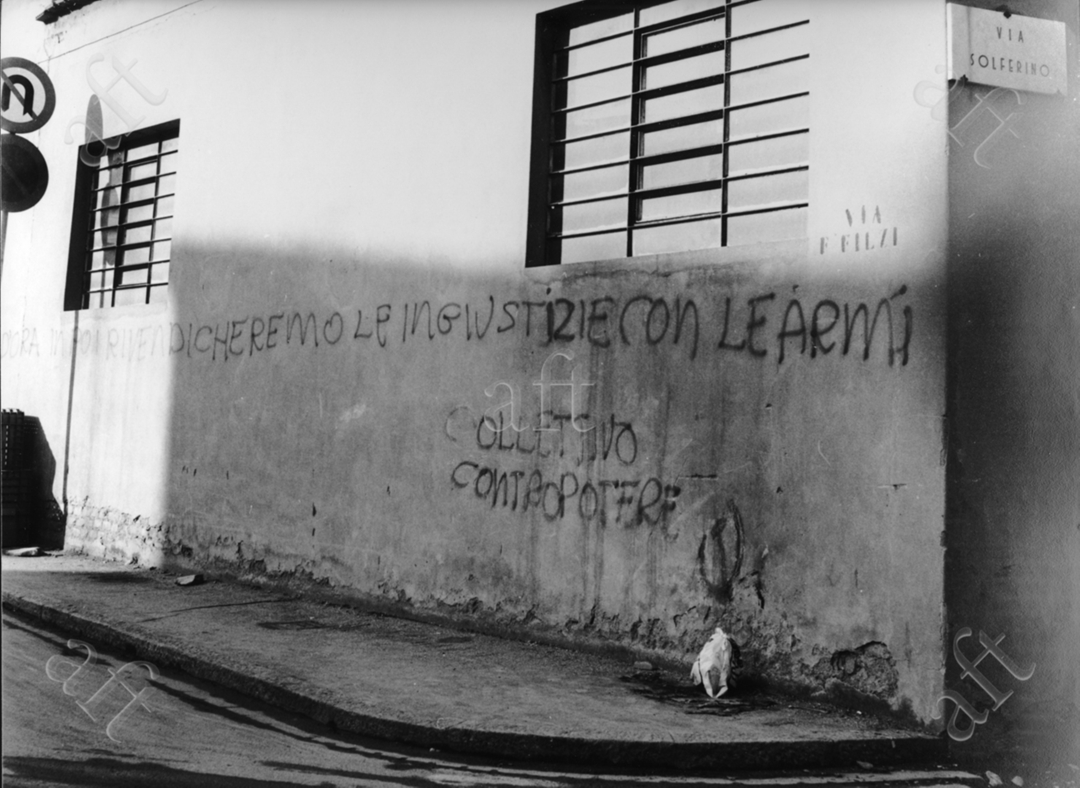 VIA
SOLFERINO
VIA
F. FILZI
D'ORA IN POI RIVENDICHEREMO LE INGIUSTIZIE CON LE ARMI
COLLETTIVO
CONTROPOTERE
aft
aft
aft
aft
aft